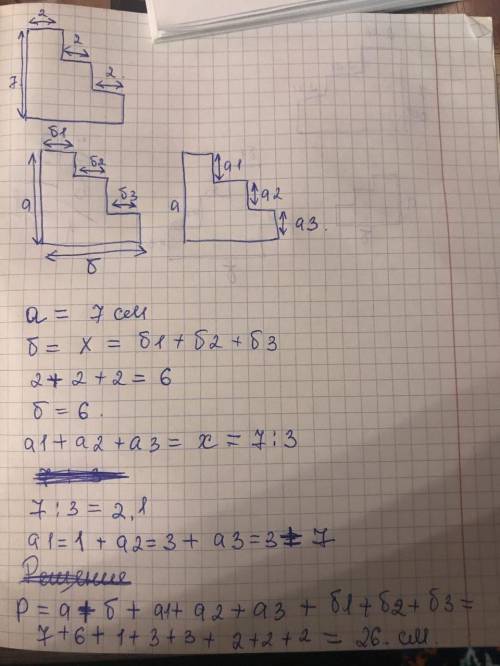 2
2
2
7
б1
б2
б3
а
б
а
а1
а2
а3.
а = 7 см
б = х = б1 + б2 + б3
2 + 2 + 2 = 6
б = 6.
а1 + а2 + а3 = х = 7 : 3
7 : 3 = 2,1
а1 = 1 + а2 = 3 + а3 = 3 = 7
Решение
Р = а + б + а1 + а2 + а3 + б1 + б2 + б3 =
7 + 6 + 1 + 3 + 3 + 2 + 2 + 2 = 26 см.